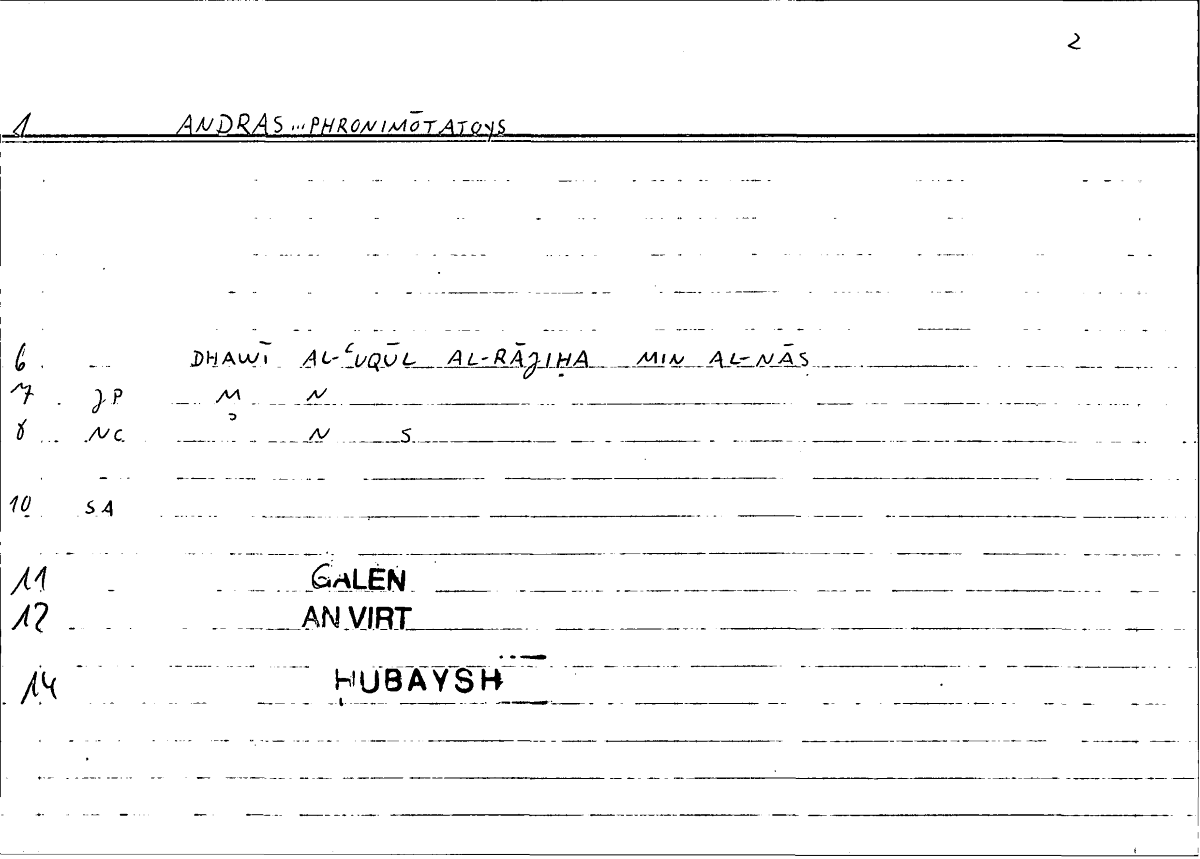 2
1 ANDRAS...PHRONIMŌTATOYS
6 DHAWĪ AL-ʿUQŪL AL-RĀJIḤA MIN AL-NĀS
7 JP M N
8 NC N S
10 SA
11 GALEN
12 AN VIRT
14 ḤUBAYSH